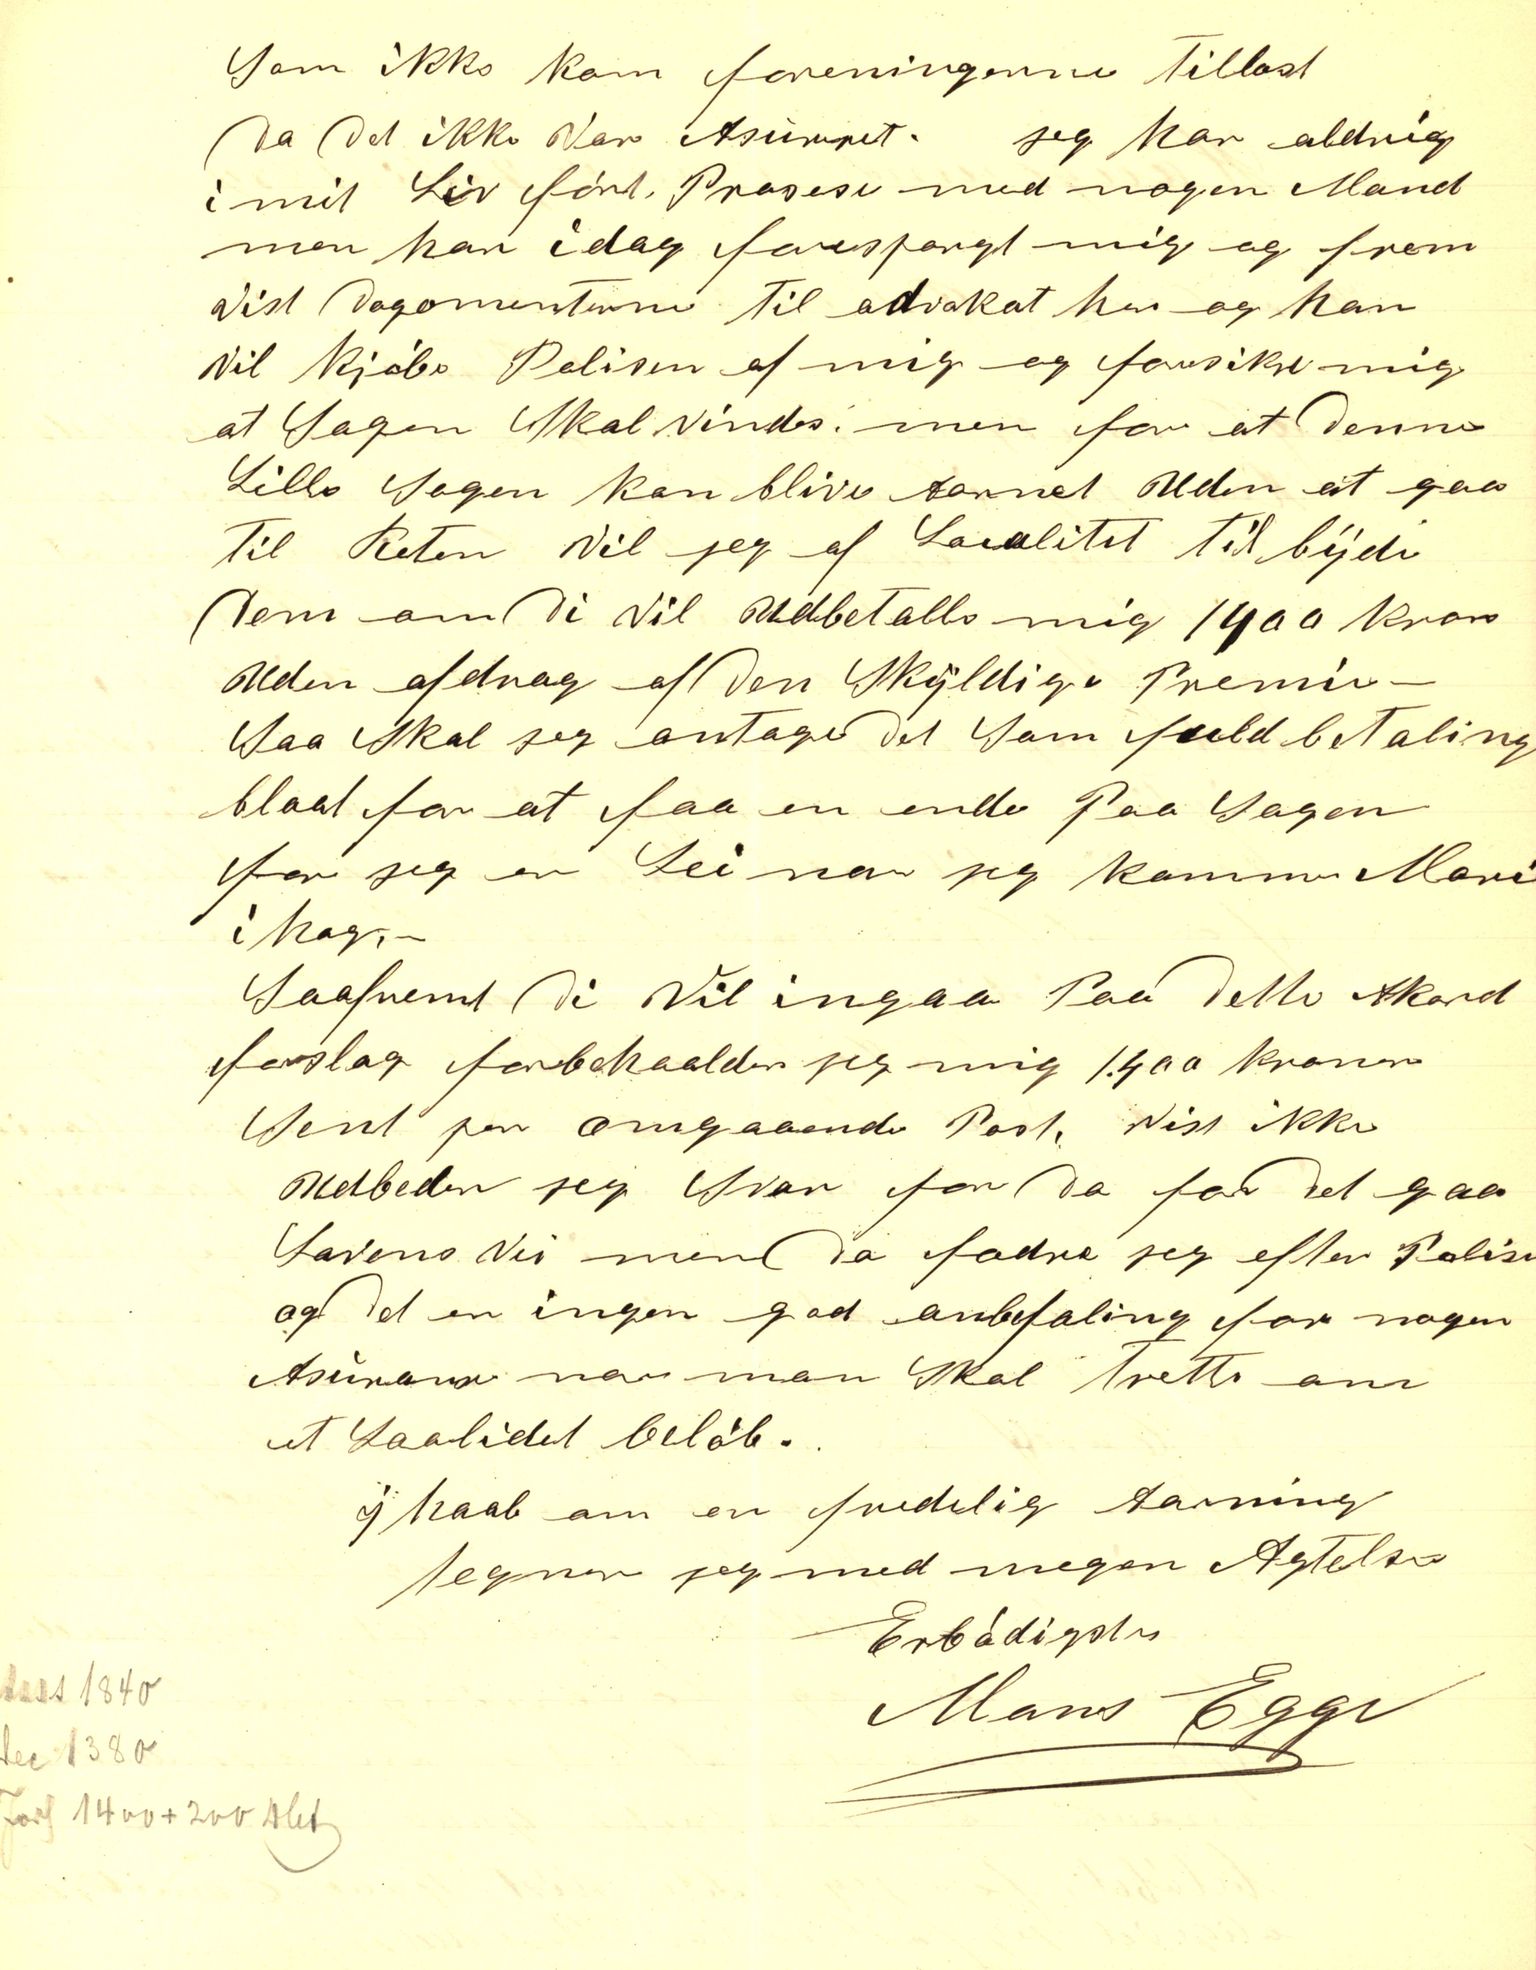 Som ikke kom foreningerne tillast
da det ikke var Asurert. jeg har aldrig
i mit Liv fört. Prosese med nogen Mand
men har idag forespørgt mig og frem
vist dogomenterne til advokat her og han
vil kjöbe Polisen af mig og forsikre mig
at Sagen Skal vindes. men for at denne
Lille Sagen kan blive aarnet Uden at gaa
til Reten vil jeg af Loialitet tilbÿde
dem om di vil Udbetalle mig 1400 kroner
Uden afdrag af den Skÿldige Premie –
Saa Skal jeg antage det Som fuld betaling
blaat for at faa en ende Paa Sagen
for jeg er Lei nar jeg kommer Marie
i hag. –
Saafremt di vil ingaa Paa dette Akord
forslag forbehaalder jeg mig 1400 kroner
Sent per omgaaende Post. vist ikke
Udbeder jeg Svar for da får det gaa
Lavens vei men da fodre jeg efter Polise
og det er ingen god anbefaling for nogen
Asuranse nar man Skal trette om
et Saalidet belöb.
ÿ haab om en fredelig aarning
tegner jeg med megen Agtelse
Erbödigste
Mons Egge
1840
1380
1400 + 200